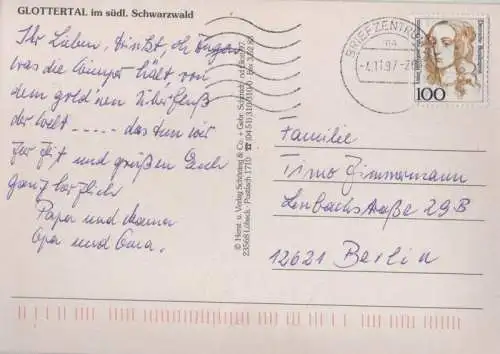 GLOTTERTAL im südl. Schwarzwald
Ihr Lieben, trinkt, oh Augen
was die Wimper hält von
dem gold'nen Überfluß
der Welt ----- das tun wir
zur Zeit und grüßen Euch
ganz herzlich
Papa und Mama
Opa und Oma.
© Herst. u. Verlag Schöning & Co. + Gebr. Schmidt
23568 Lübeck · Postfach 1710 ☎ (0451)
BRIEFZENTRUM
-4.11.97-
100
Familie
Timo Zimmermann
Lenbachstraße 29B
12621 Berlin